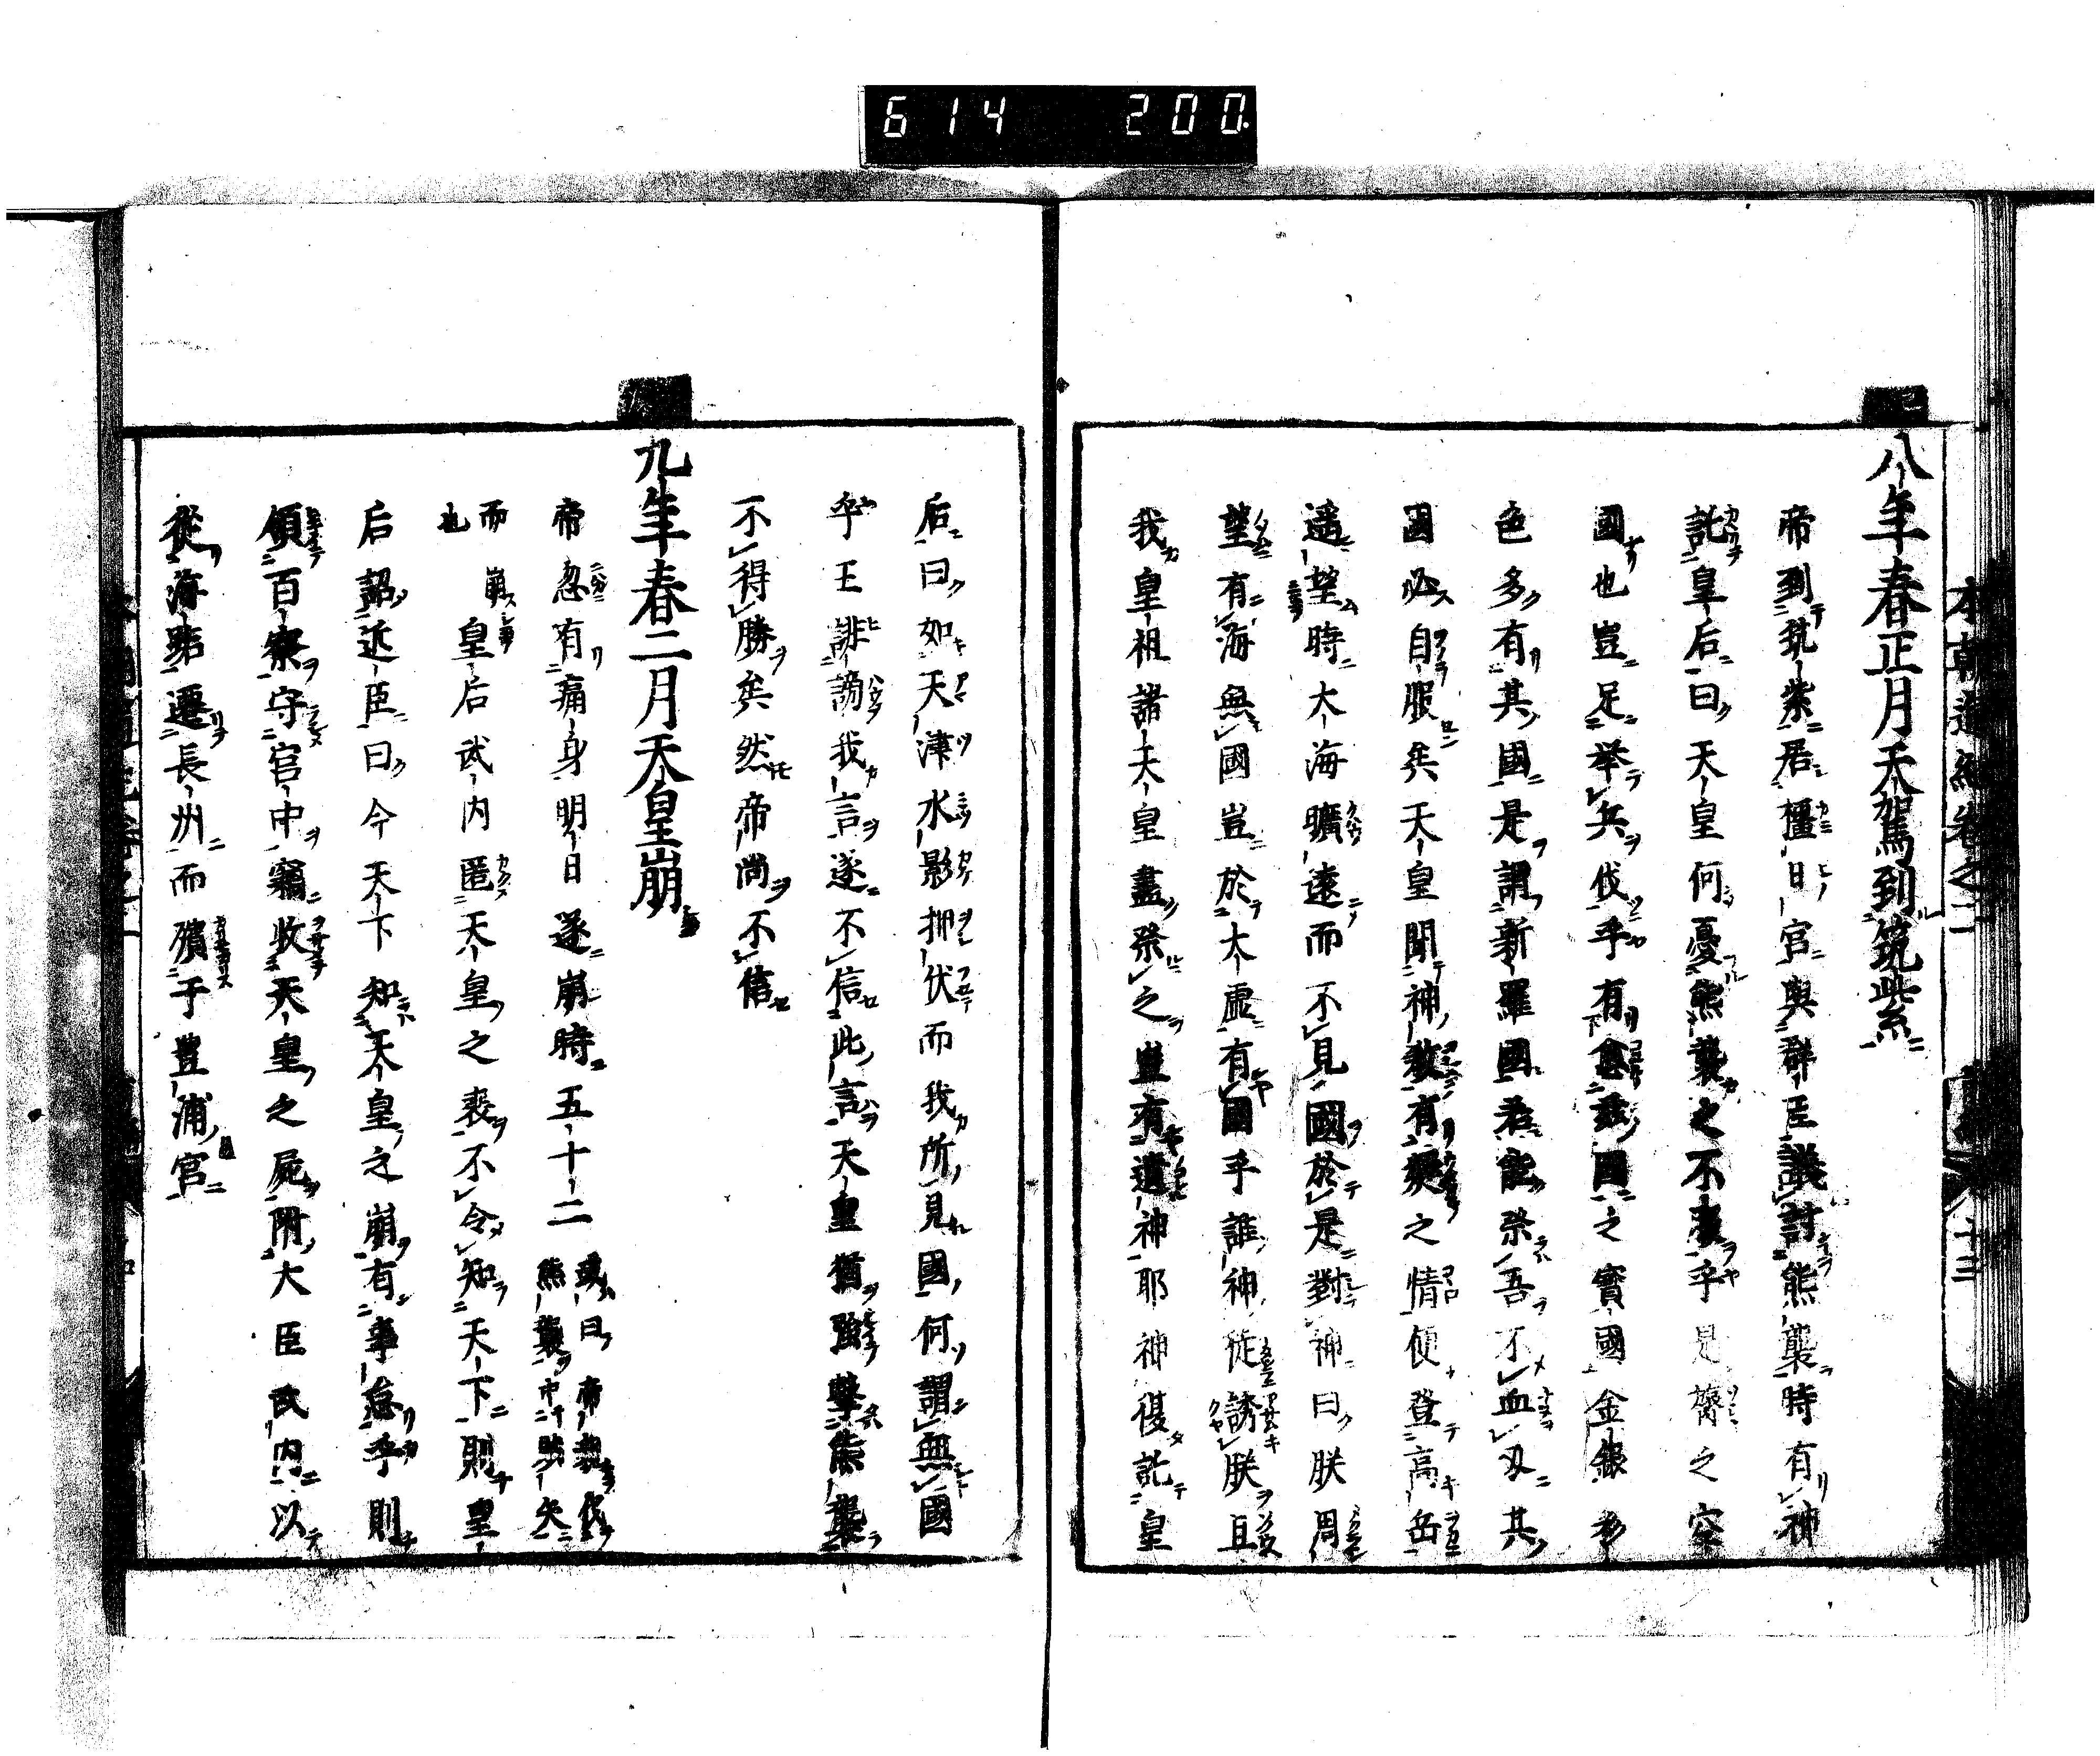 614 200
八年春正月天駕到筑紫
帝到筑紫居橿日宮與群臣議討熊襲時有神
託皇后曰天皇何憂熊襲之不服乎是膂之空
國也豈足举兵伐乎有愈茲國之寳國金銀多
色多有其國是謂新羅國君能祭吾不血刃其
國必自服矣天皇聞神教有疑之情便登高岳
遥望時大海曠遠而不見國於是對神曰朕周
望有海無國豈於大虚有國乎誰神徒誘朕且
我皇祖諸天皇盡祭之豈有遺神耶神復託皇
后曰如天津水影押伏而我所見國何謂無國
乎王誹謗我言遂不信此言天皇猶強擊熊襲
不得勝矣然帝尚不信
九年春二月天皇崩
帝忽有痛身明日遂崩時五十二或曰帝親伐
熊襲中賊矢
而崩
也
皇后武内匿天皇之喪不令知天下則皇
后詔近臣曰今天下知天皇之崩有事怠乎則
領百寮守宮中竊收天皇之屍附大臣武内以
從海路遷長州而殯于豊浦宮
本朝通紀卷之二
十三